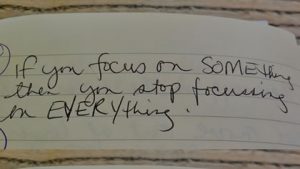 If you focus on SOMEthing
then you stop focussing
on EVERYthing.